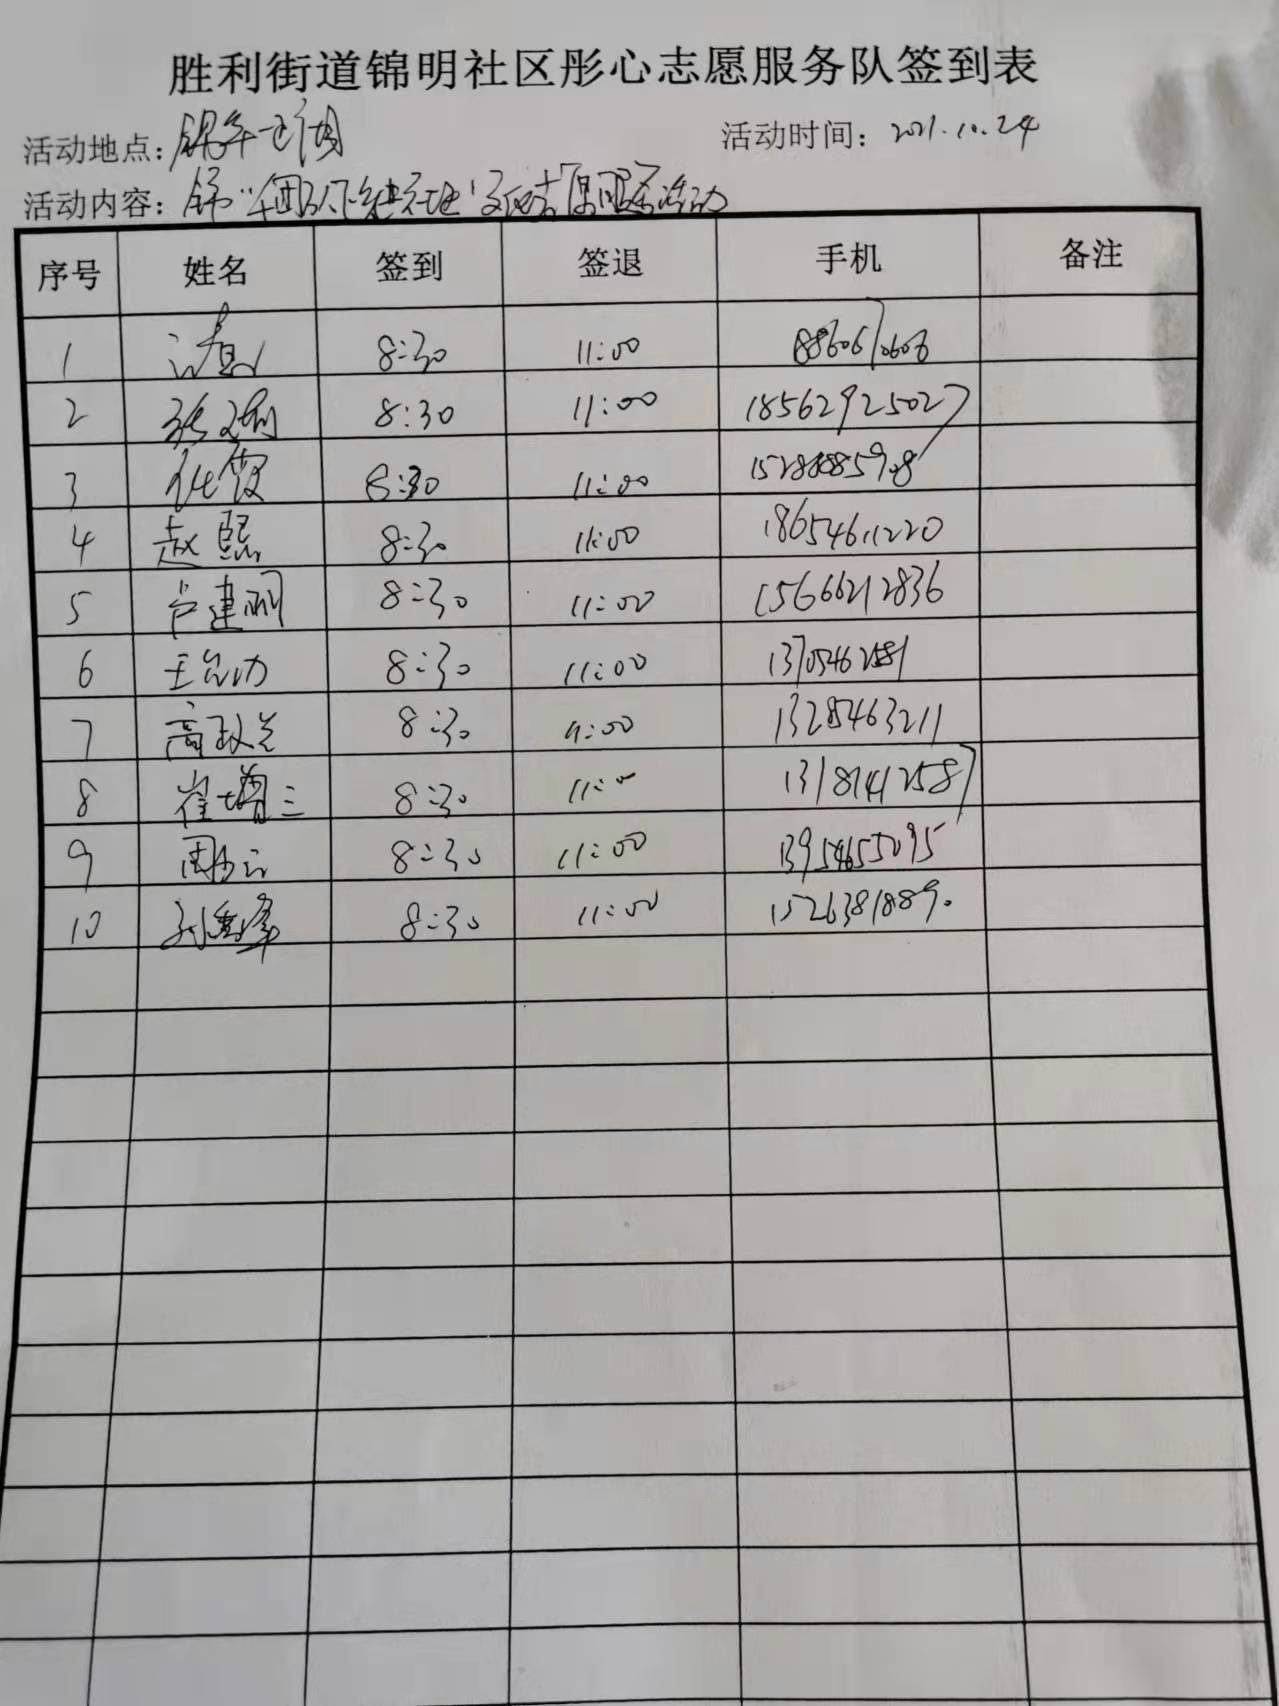 胜利街道锦明社区彤心志愿服务队签到表
活动地点: 活动时间: 2021.10.24
活动内容: 活动
序号 姓名 签到 签退 手机 备注
1 8:30 11:00
2 张 8:30 11:00 18562925027
3 霞 8:30 11:00
4 赵熙 8:30 11:00 18654611220
5 卢建丽 8:30 11:00 15666212836
6 王 8:30 11:00 13705462581
7 高政兰 8:30 11:00 13285463211
8 崔增三 8:30 11:00 13181412587
9 周 8:30 11:00 13954655095
10 孙 8:30 11:00 15263818890